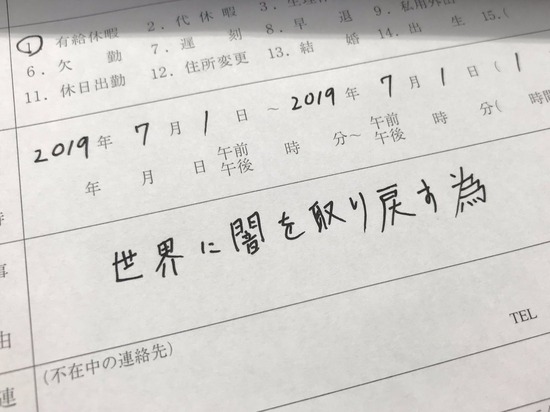 1．有給休暇 2．代休暇 3．生理休
6．欠勤 7．遅刻 8．早退 9．私用外出
11．休日出勤 12．住所変更 13．結婚 14．出生 15．(
2019年7月1日～2019年7月1日(1
年月日午前午後時分～午前午後時分(時間
事由
世界に闇を取り戻す為
(不在中の連絡先)
TEL
連